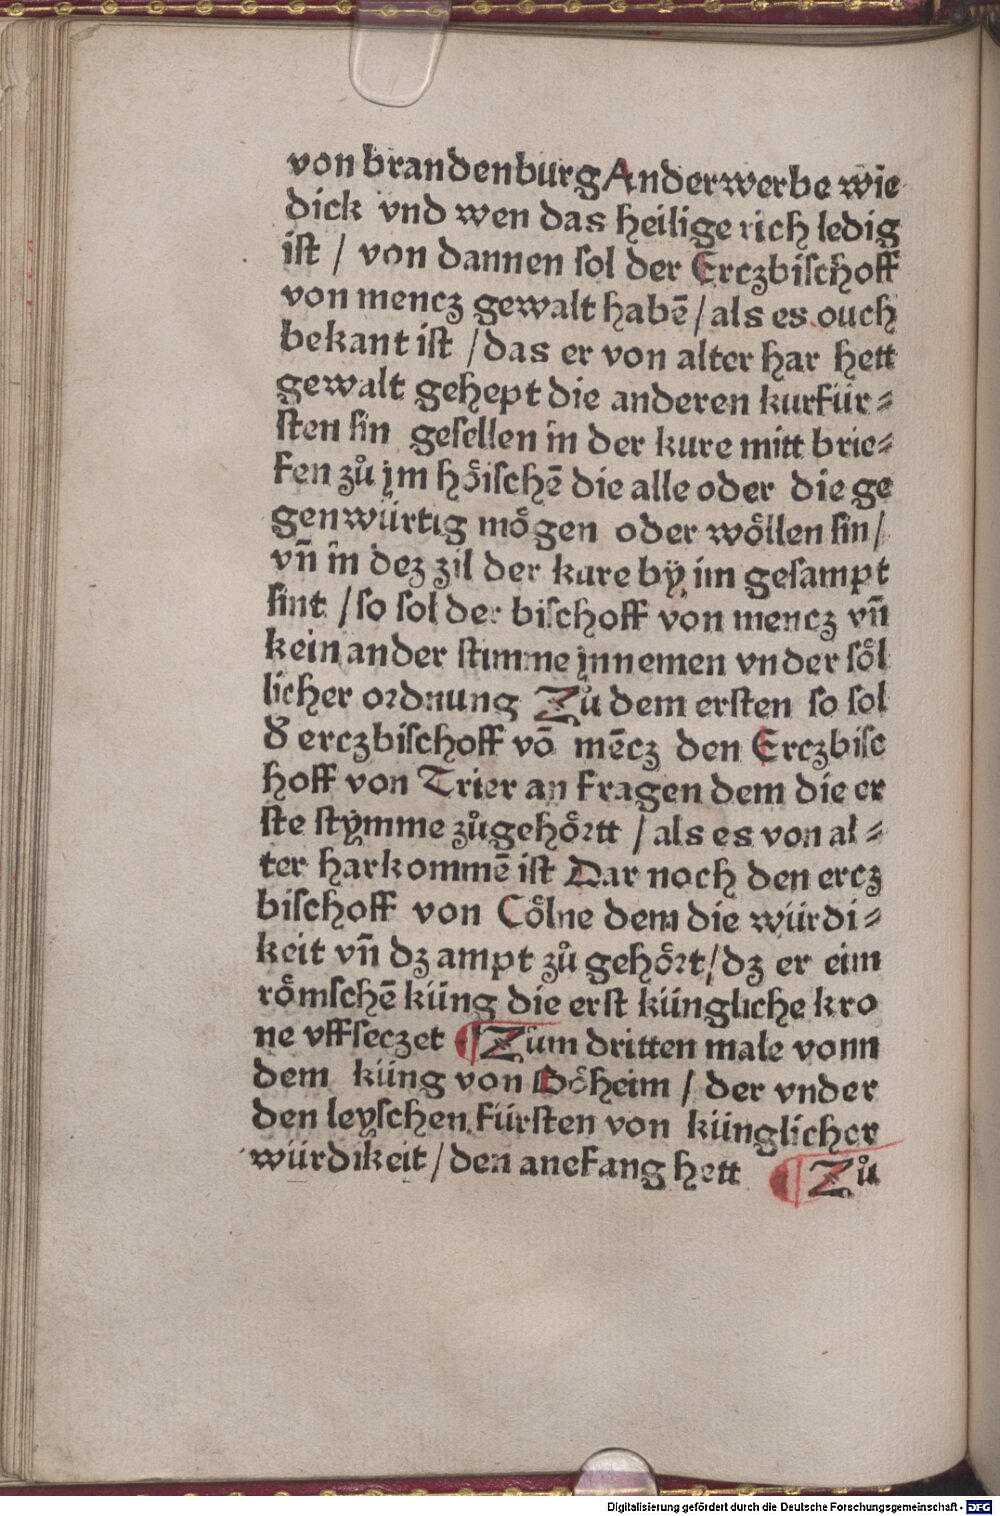 von brandenburg Anderwerbe wie
dick vnd wen das heilige rich ledig
ist / von dannen sol der Erczbischoff
von mencz gewalt habē / als es ouch
bekant ist / das er von alter har hett
gewalt gehept die anderen kurfür⸗
sten sin gesellen in der kure mitt brie⸗
fen zů jm höischē die alle oder die ge
genwürtig mögen oder wöllen sin /
vn̄ in dez zil der kure bÿ im gesampt
sint / so sol der bischoff von mencz vn̄
kein ander stimme jnnemen vnder söl
licher ordnung Zů dem ersten so sol
d' erczbischoff vō mēcz den Erczbisc
hoff von Trier an fragen dem die er
ste stÿmme zůgehörtt / als es von al⸗
ter harkommē ist Dar noch den ercz
bischoff von Cölne dem die würdi⸗
keit vn̄ dz ampt zů gehört / dz er eim
römschē küng die erst küngliche kro
ne vffseczet ¶ Zum dritten male vonn
dem küng von Böheim / der vnder
den leyschen fürsten von künglicher
würdikeit / den anefang hett ¶ Zů
Digitalisierung gefördert durch die Deutsche Forschungsgemeinschaft - DFG